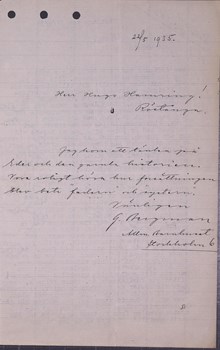 22/5 1935.
Herr Hugo Henning!
Röstånga.
Jag kom att tänka på
Eder och den gamla historien.
Vore roligt höra hur fortsättningen
blev bets "fadern" och systern.
Vänligen
G. Bergman
Allm. Barnhuset
Stockholm 6